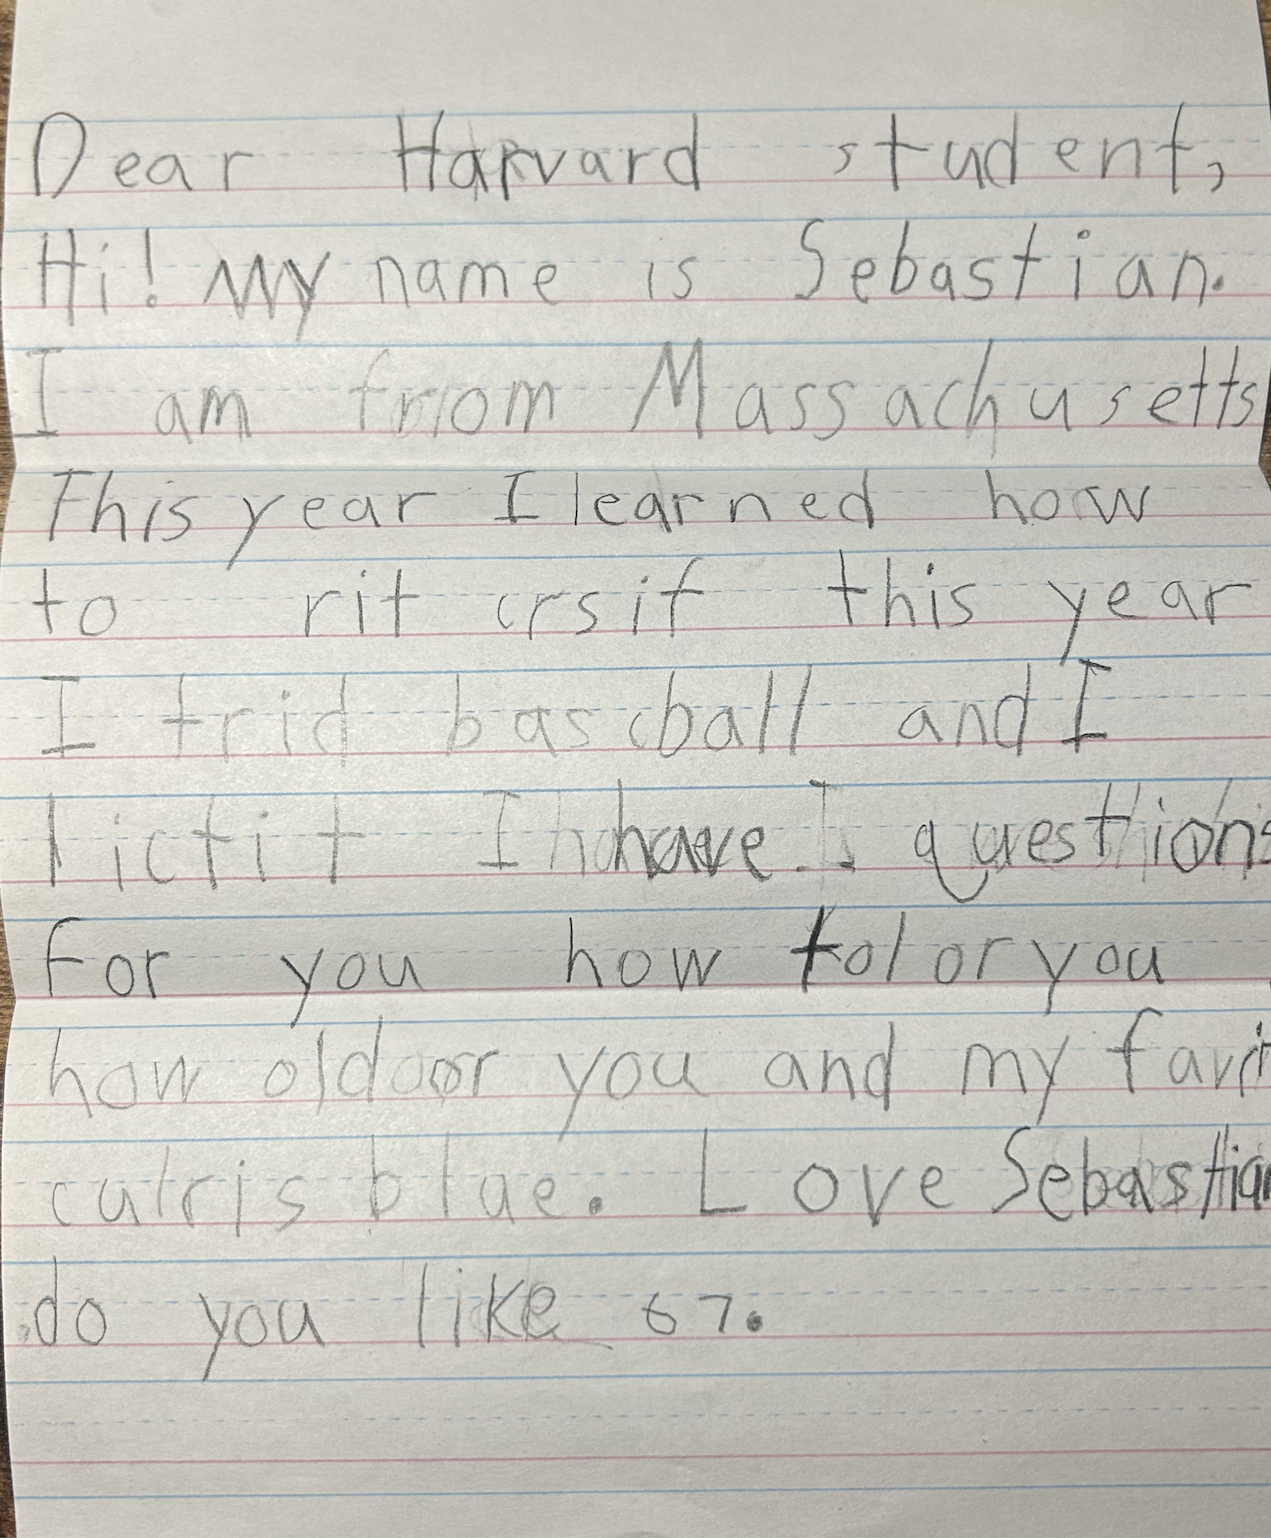 Dear Harvard student,
Hi! My name is Sebastian.
I am from Massachusetts
This year I learned how
to rit crsif this year
I trid basball and I
lictit I have questions
for you how tol or you
how old or you and my favrit
culr is blue. Love Sebastian
do you like 67.